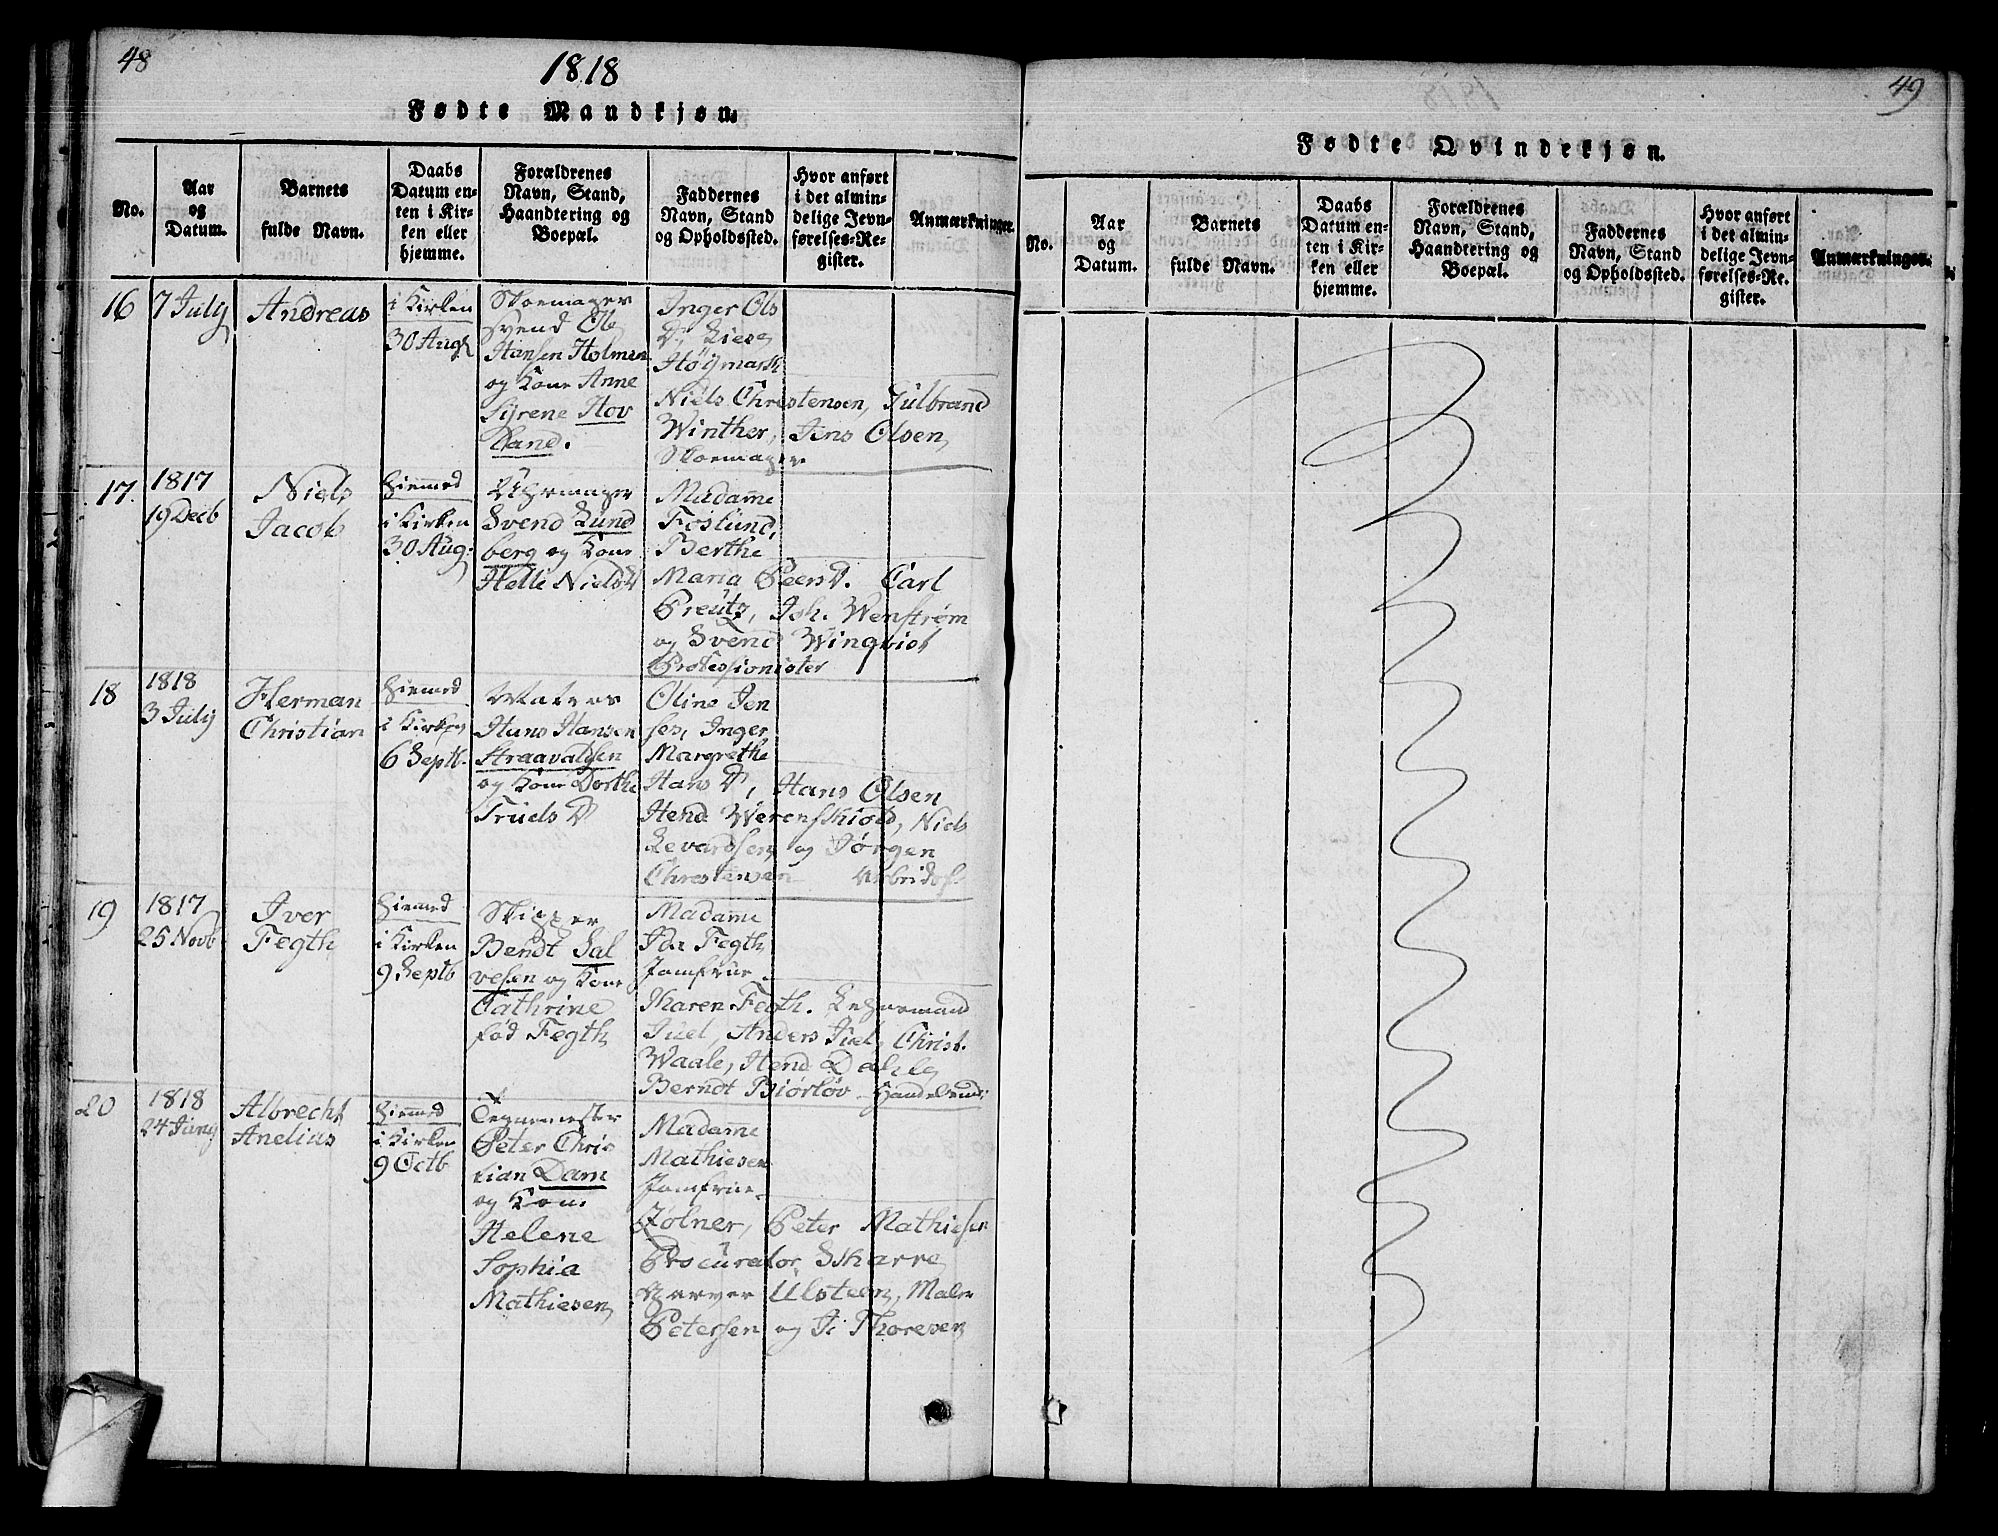 48
1818
Fødte Mandkjøn.
No.
Aar
og
Datum.
Barnets
fulde Navn.
Daabs
Datum en-
ten i Kir-
ken eller
hjemme.
Forældrenes
Navn, Stand,
Haandtering og
Boepæl.
Faddernes
Navn, Stand
og Opholdssted.
Hvor anført
i det almin-
delige Jevn-
førelses-Re-
gister.
Anmærkninger.
16
7 July
Andreas
i Kirken
30 Aug
Skoemager
svend Ole
Hansen Holmen
og Kone Anne
Syrene Hov
land.
Inger Ols
D,
Höÿmark
Niels Christensen, Gulbrand
Winther, Jens Olsen,
Skoemager
17.
1817
19 Decb
Niels
Jacob
Hiemed
i Kirken
30 Aug:
Uhrmager
Svend Lund
berg og Kone
Helle Niels D
Madame
Foslund,
Berthe
Maria Peers D. Carl
Preutz, Joh. Wenstrøm
og Svend Winqvist
Professionister
18
1818
3 July
Herman
Christian
Hiemed
i Kirken
6 Septb.
Matros
Hans Hansen
Straavaldsen
og Kone Dorthe
Truels D
Oline Jen
sen, Inger
Margrethe
Hans D, Hans Olsen
Hend Werenskiold, Niels
Levardsen og Jørgen
Christensen Arbeidsf.
19
1817
25 Novb
Iver
Fegth
Hiemed
i Kirken
9 Septb
Skipper
Bendt Sal
vesen og Kone
Cathrine
fød Fegth
Madame
Ida Fegth
Jomfrue
Maren Fegth.
Juel, Anders Juel, Christ.
Waale, Hend Dahle
Berndt Biørløv Handelsmd:
20
1818
24 Juny
Albrecht
Anelius
Hiemed
i Kirken
9 Octb
Tegnemester
Peter Chris
tian Dam
og Kone
Helene
Sophia
Mathiesen
Madame
Mathiesen
Jomfrue
Zølner, Peter Mathiesen
Procurator Skarre
Garver Ulsteen, Maler
Petersen og J. Thoresen
49
Fødte Qvindekjøn.
No.
Aar
og
Datum.
Barnets
fulde Navn.
Daabs
Datum en-
ten i Kir-
ken eller
hjemme.
Forældrenes
Navn, Stand,
Haandtering og
Boepæl.
Faddernes
Navn, Stand
og Opholdssted.
Hvor anført
i det almin-
delige Jevn-
førelses-Re-
gister.
Anmærkninger.